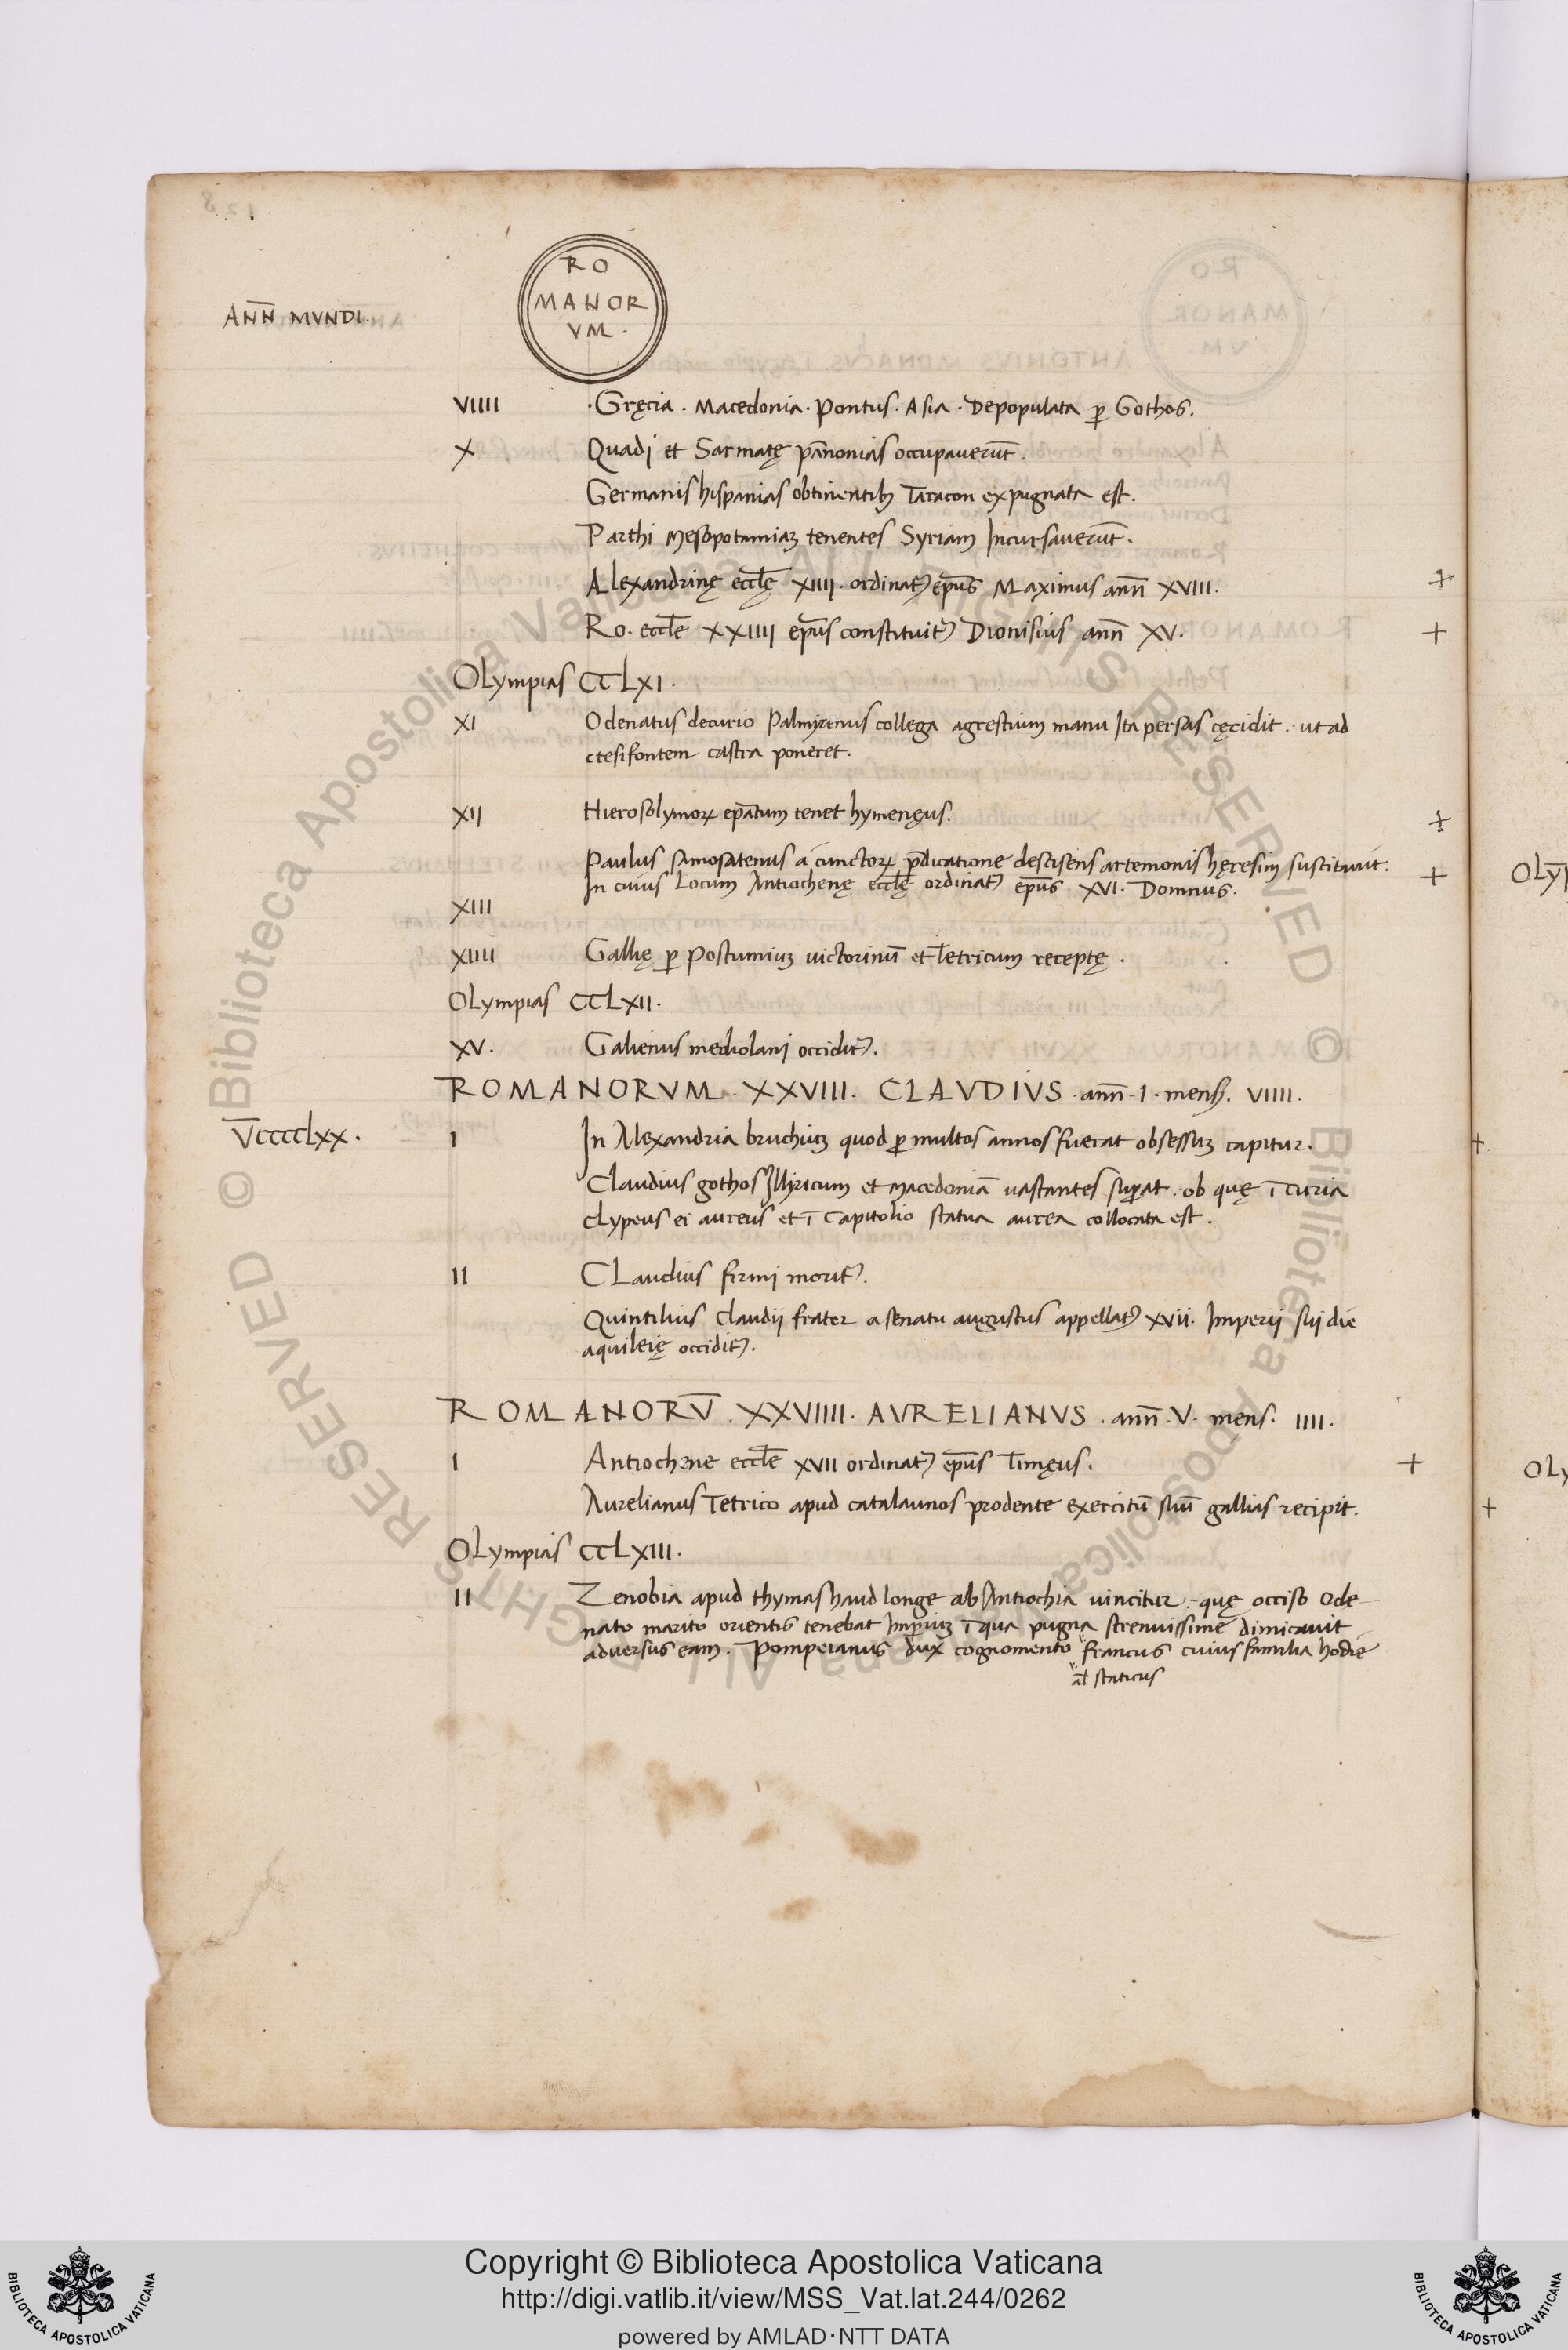 RO
MANOR
VM.
AÑÑ MVNDI.
VIIII .Gręcia. Macedonia. Pontus. Asia. Depopulata ꝑ Gothos.
X Quadi et Sarmatę pānonias occupauerūt.
Germanis hispanias obtinentibꝫ Taracon expugnata est.
Parthi Mesopotamiaꝫ tenentes Syriam Incursauerūt.
Alexandrinę eccl̄ę XIIII. ordinatꝰ ep̄us Maximus an̄n XVIII. +
Ro. eccl̄e XXIIII ep̄us constituit᷑ Dionisius an̄n XV. +
OLympias CCLXI.
XI Odenatus decurio Palmyrenus collega agrestium manu Ita persas cęcidit. ut ad
ctesifontem castra poneret.
XII Hierosolymoꝝ ep̄atum tenet hymenęus. +
Paulus samosatenus a cunctoꝝ p̄dicatione descisens artemonis hęresim suscitauit.
In cuius Locum Antiochenę eccl̄ę ordinat᷑ ep̄us XVI. Domnus. +
XIII
XIIII Gallię ꝑ Postumiuꝫ uictorinū et Tetricum receptę.
OLympias CCLXII.
XV. Galienus mediolani occidit᷑.
ROMANORVM. XXVIII. CLAVDIVS. an̄n. I. mens. VIIII.
V̄CCCCLXX. I In Alexandria bruchiuꝫ quod ꝑ multos annos fuerat obsessuꝫ capitur. +
Claudius gothos Illyricum et Macedoniā uastantes suꝑat. ob quę ī curia
clypeus ei aureus et ī Capitolio statua aurea collocata est.
II CLaudius firmi morit᷑.
Quintilius Claudii frater a senatu augustus appellatꝰ XVII. Imperii sui die
aquileię occidit᷑.
ROMANORV̄. XXVIIII. AVRELIANVS. an̄n. V. mens. IIII.
I Antiochene eccl̄e XVII ordinat᷑ ep̄us Timęus. +
Aurelianus Tetrico apud catalaunos prodente exercitū suū gallias recipit. +
OLympias CCLXIII.
II Zenobia apud thymas haud longe ab Antiochia uincitur. quę occiso Ode
nato marito orientis tenebat Imꝑiuꝫ ī qua pugna strenuissime dimicauit
aduersus eam. Pomperanus dux cognomento francus cuius familia hodie
al̄ staticus
OLyp
OLy
Copyright © Biblioteca Apostolica Vaticana
http://digi.vatlib.it/view/MSS_Vat.lat.244/0262
powered by AMLAD·NTT DATA
BIBLIOTECA APOSTOLICA VATICANA
BIBLIOTECA APOSTOLICA VATICANA